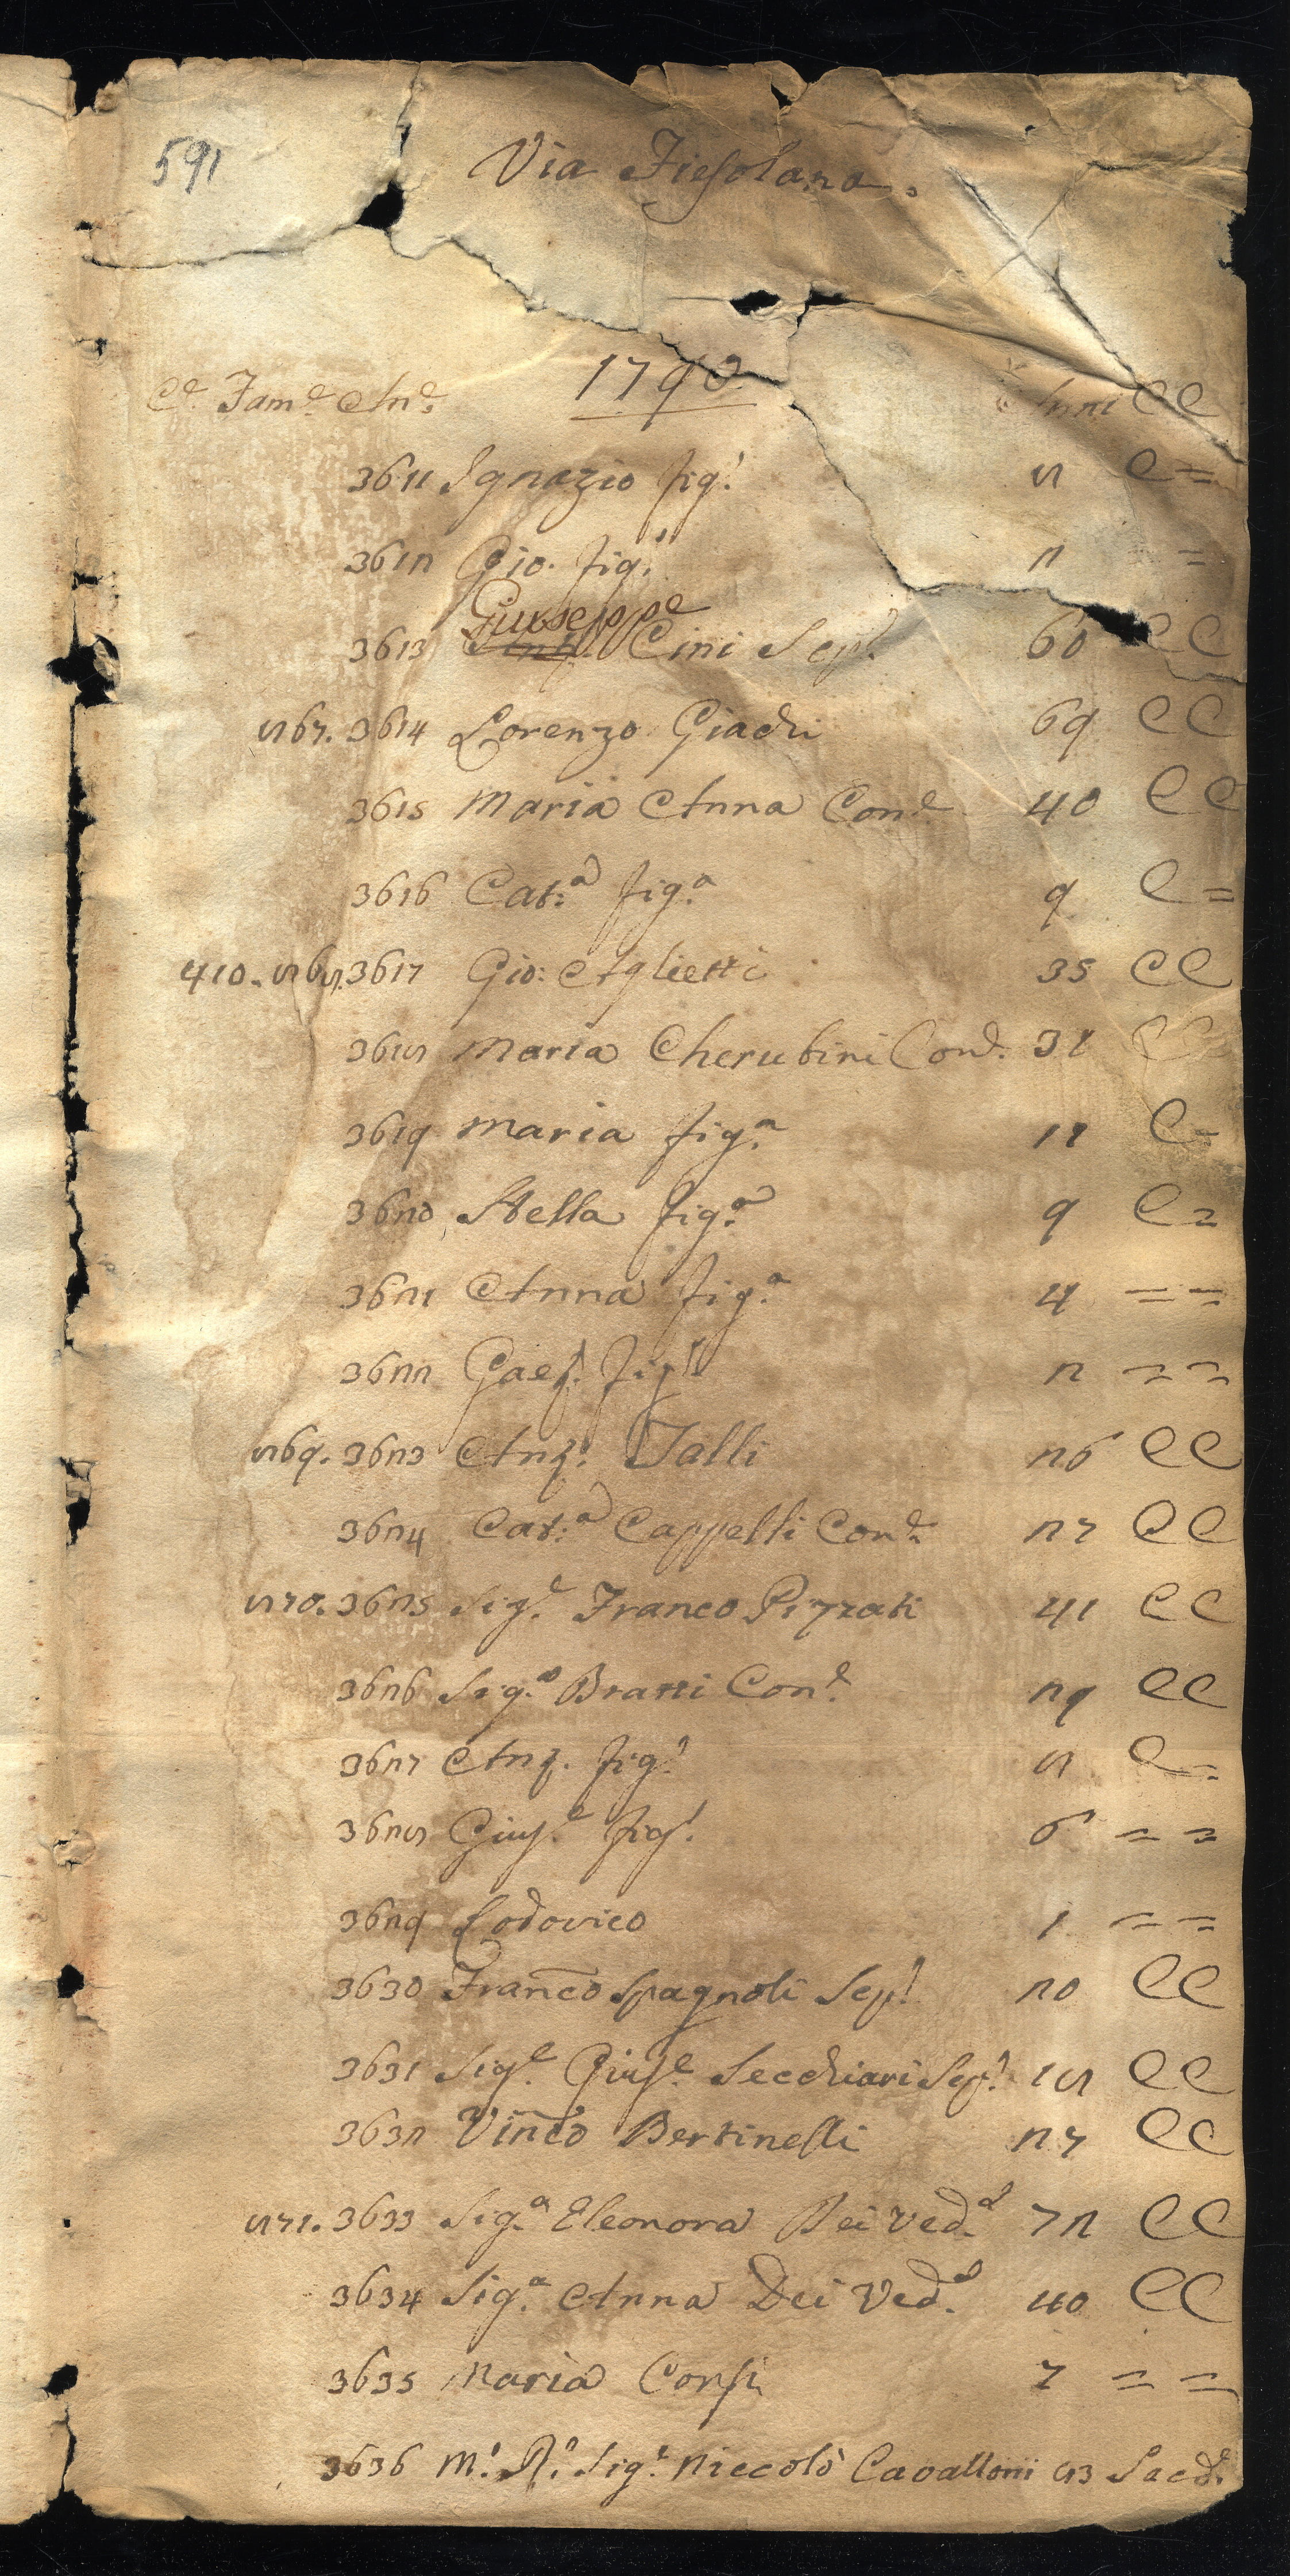 591
Via Fiesolana.
1790.
Ce. Fame. Ane. Anni CC
3611 Ignazio fig.º 8 C =
3612 Gio. fig.º 2 =
Giuseppe
3613 Cini Sep.º 60 CC
867. 3614 Lorenzo Giachi 69 CC
3615 Maria Anna Con.e 40 CC
3616 Cat.a fig.a 9 C =
410. 868. 3617 Gio: Aglietti 35 CC
3618 Maria Cherubini Con.e 31 CC
3619 Maria fig.a 11 C =
3620 Stella fig.a 9 C =
3621 Anna fig.a 4 = =
3622 Gaet.º fig.º 2 = =
869. 3623 Ant.º Talli 26 CC
3624 Cat.a Cappelli Con.e 27 CC
870. 3625 Sig.e Franco Pizzati 41 CC
3626 Sig.a Bratti Con.e 29 CC
3627 Ant. fig.º 8 C =
3628 Gius.e fig.º 6 = =
3629 Lodovico 1 = =
3630 Franco Spagnoli Sep.º 20 CC
3631 Sig.e Gius.e Secchiari Sep.º 18 CC
3632 Vinco Bertinelli 27 CC
871. 3633 Sig.a Eleonora Dei Ved.a 72 CC
3634 Sig.a Anna Dei Ved.a 40 CC
3635 Maria Corsi 7 = =
3636 M.º R.º Sig.e Niccolò Cavalloni 83 Sacd.e